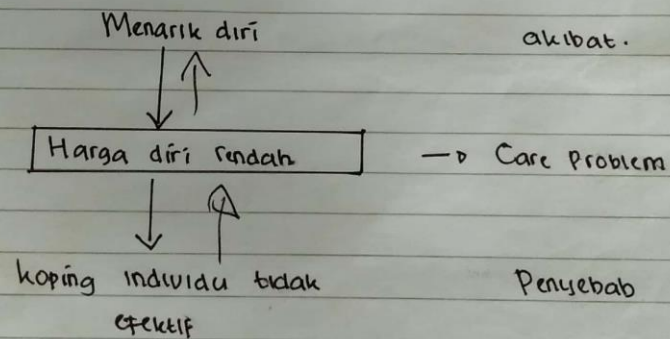 Menarik diri akibat.
Harga diri rendah → Care Problem
koping individu tidak Penyebab
efektif